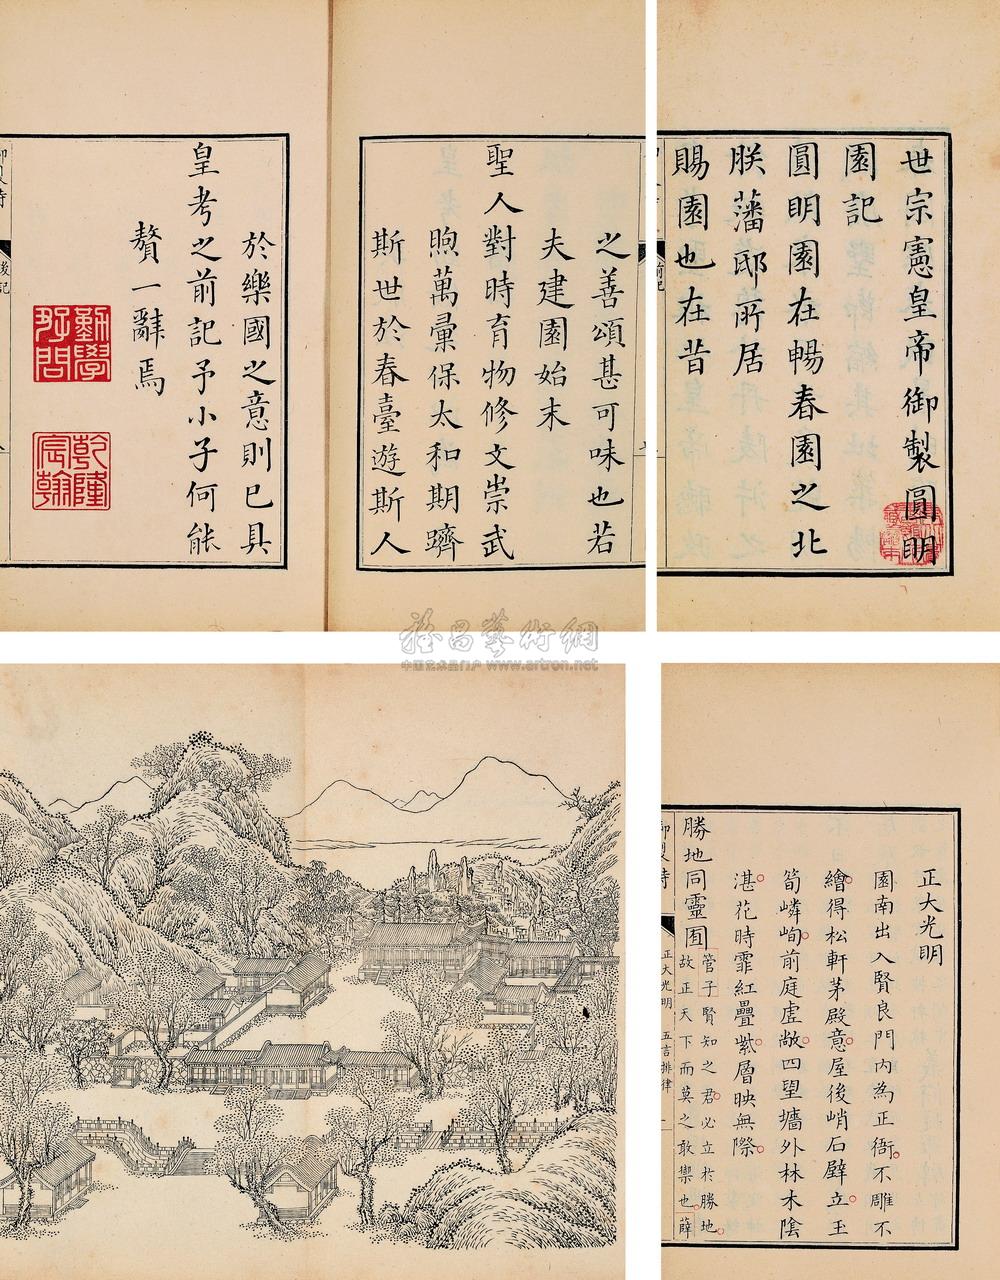 世宗憲皇帝御製圓明
園記
圓明園在暢春園之北
朕藩邸所居
賜園也在昔
前記
之善頌甚可味也若
夫建園始末
聖人對時育物修文崇武
煦萬彙保太和期躋
斯世於春臺遊斯人
於樂國之意則已具
皇考之前記予小子何能
贅一辭焉
勤學
好問
乾隆
宸翰
後記
雅昌藝術網
中国艺术品门户 www.artron.net
正大光明
園南出入賢良門內為正衙不雕不
繪得松軒茅殿意屋後峭石壁立玉
筍嶙峋前庭虛敞四望牆外林木陰
湛花時霏紅疊紫層映無際
勝地同靈囿
管子賢知之君必立於勝地
故正天下而莫之敢禦也薛
正大光明 五言排律 一